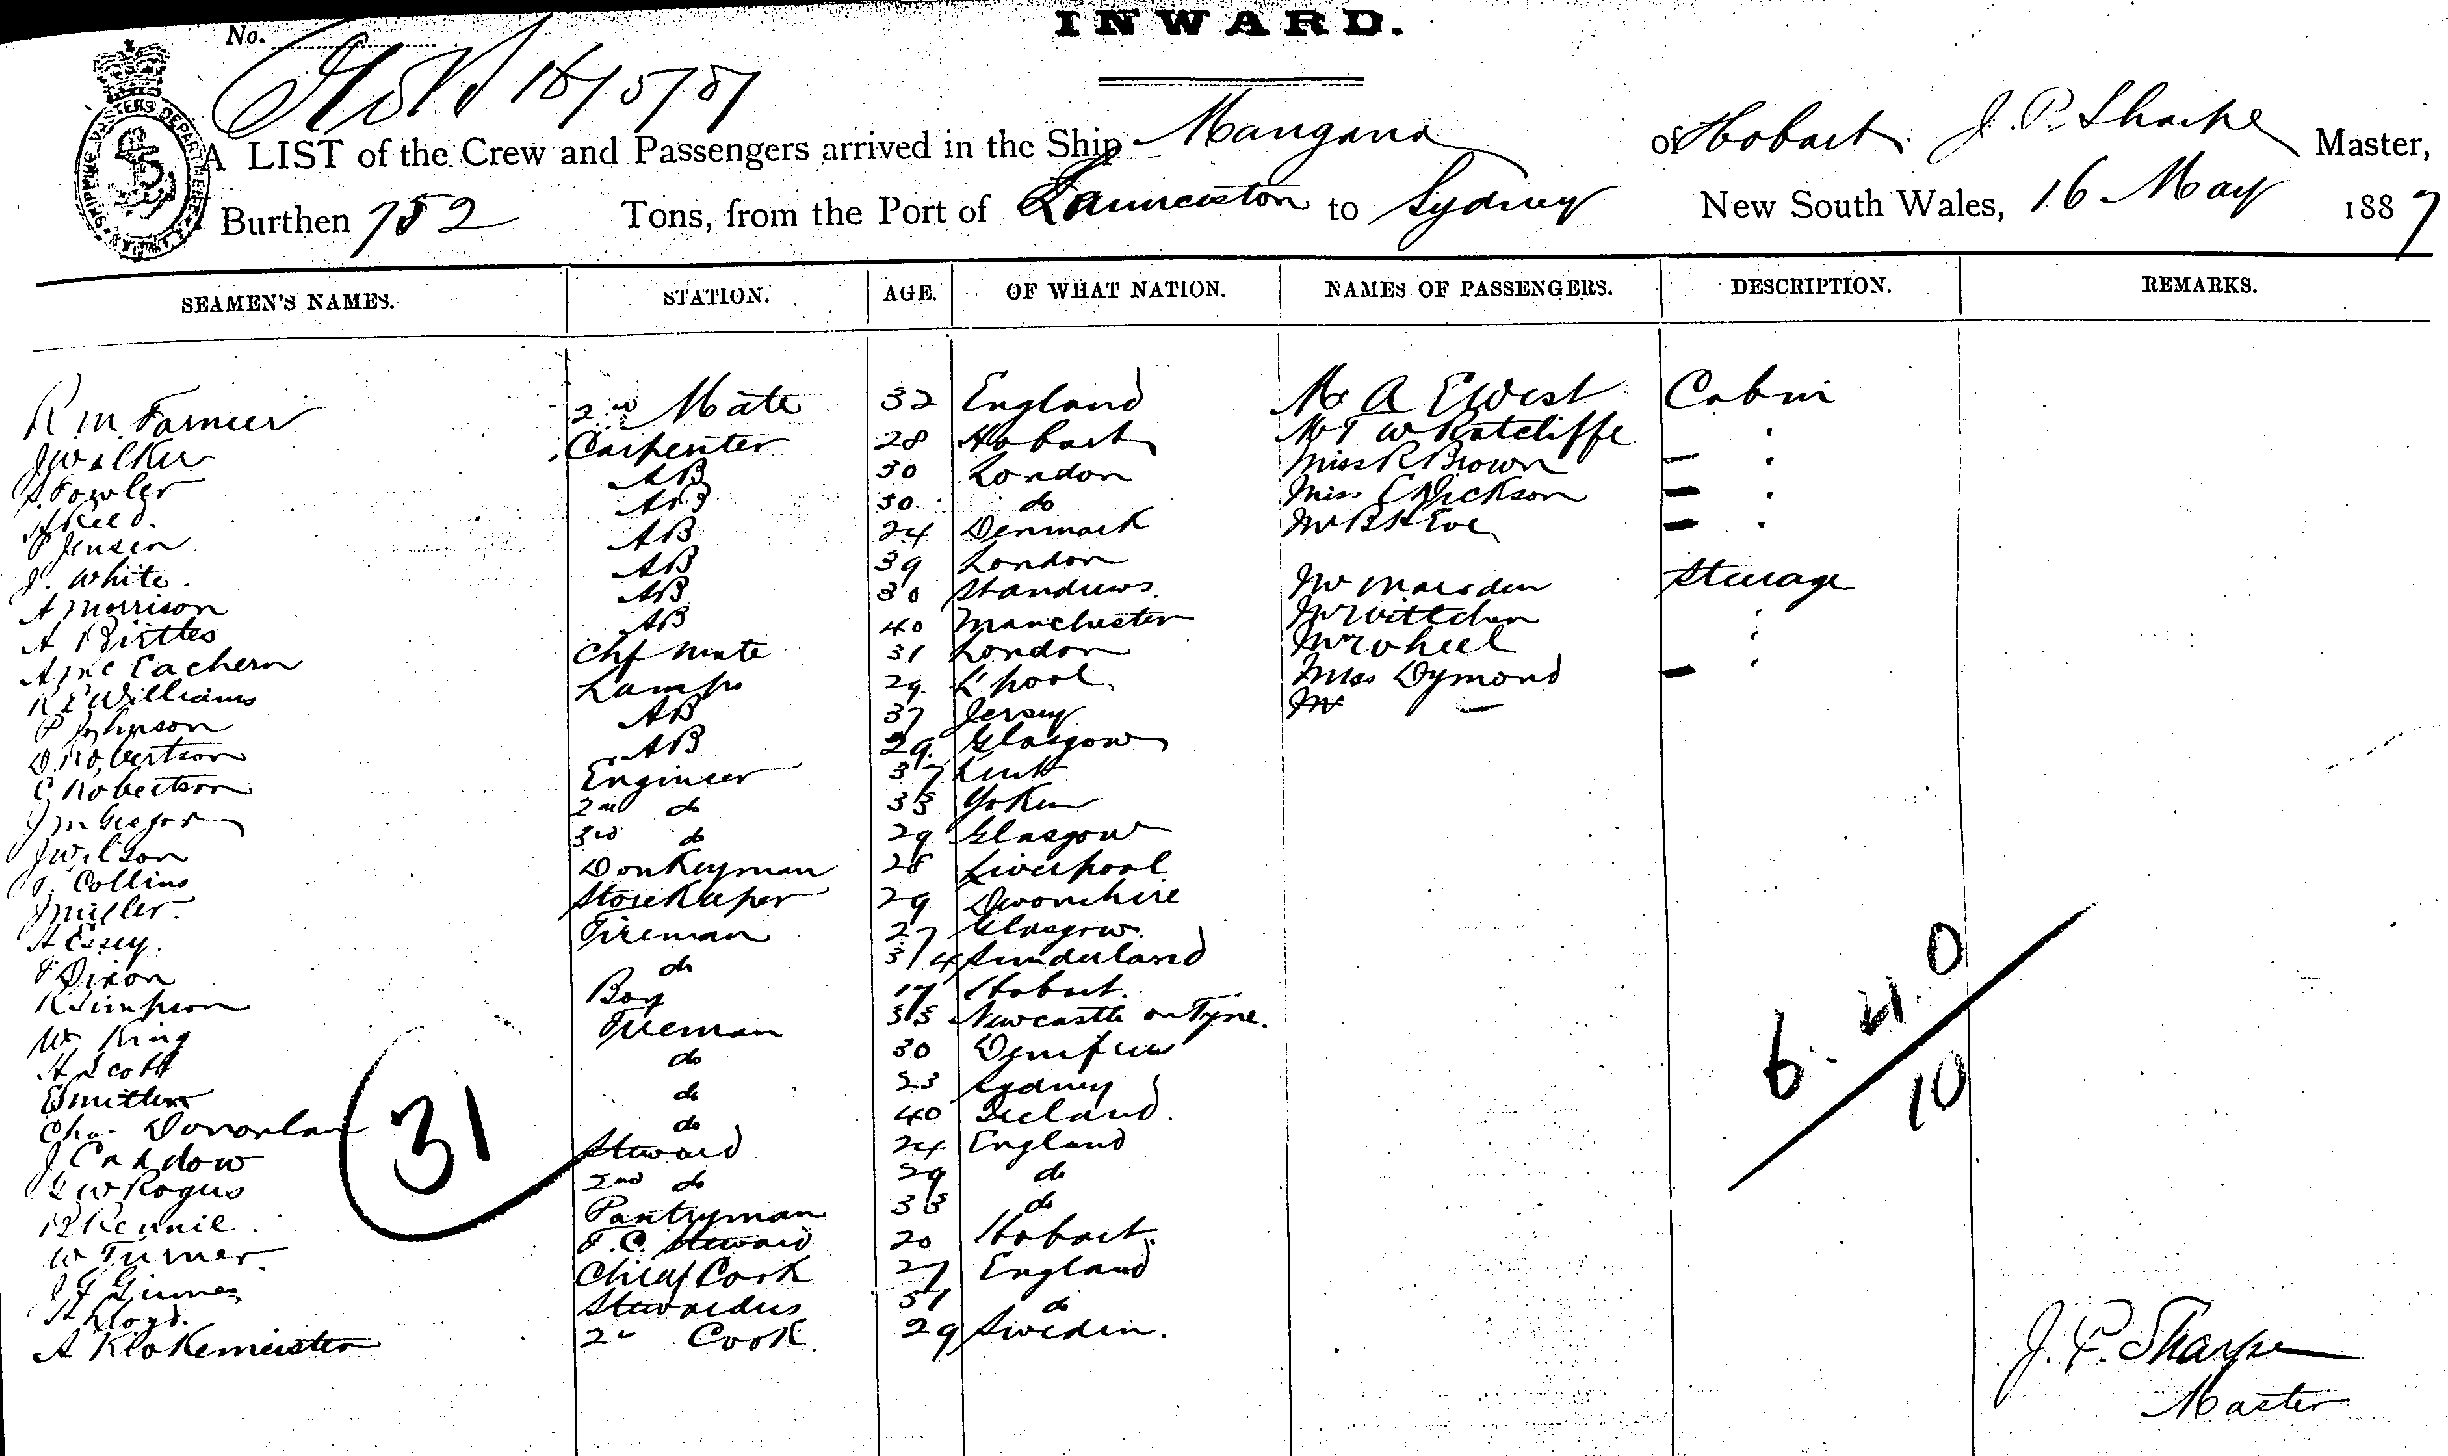 INWARD.
No.
16/5/87
A LIST of the Crew and Passengers arrived in the Ship Mangana of Hobart J. P. Sharpe Master,
Burthen 752 Tons, from the Port of Launceston to Sydney New South Wales, 16 May 1887
SEAMEN'S NAMES. STATION. AGE. OF WHAT NATION. NAMES OF PASSENGERS. DESCRIPTION. REMARKS.
R. M. Farmer 2nd Mate 32 England Mr A E West Cabin
J Walker Carpenter 28 Hobart Mr T W Ratcliffe "
S Fowler AB 30 London Miss R Brown — "
H Reed. AB 30 do Miss C Dickson — "
P Jensen AB 24 Denmark Mr B H Eve — "
J. White. AB 39 London
A Morrison AB 30 St Andrews. Mr Marsden Steerage
A Birtles AB 40 Manchester Mr Wittchen "
A McEachern Chf Mate 31 London Mr Wheel "
R E Williams Lamps 29 L'pool. Miss Dymond — "
P Johnson AB 37 Jersey Mr —
D Robertson AB 29. Glasgow
C Robertson Engineer 37 Kent
J McGregor 2nd do 33
J Wilson 3rd do 29 Glasgow
T. Collins Donkeyman 28 Liverpool
J Miller. Storekeeper 29 Devonshire
H Essey. Fireman 27 Glasgow.
T Dixon do 34 Sunderland
R Simpson Boy 17 Hobart.
W King Fireman 35 Newcastle on Tyne.
A Scott do 30
E Smithers do 23 Sydney
Chas Donovan do 40 Ireland.
J Candow Steward 24 England
G W Rogers 2nd do 29 do
R Rennie. Pantryman 33 do
W Turner. F. C. Steward 20 Hobart.
J G Chief Cook 27 England
H Lloyd. Stewardess 51 do
A Klokemeister 2nd Cook. 29 Sweden.
31
6. 4. 0
10
J. P. Sharpe
Master